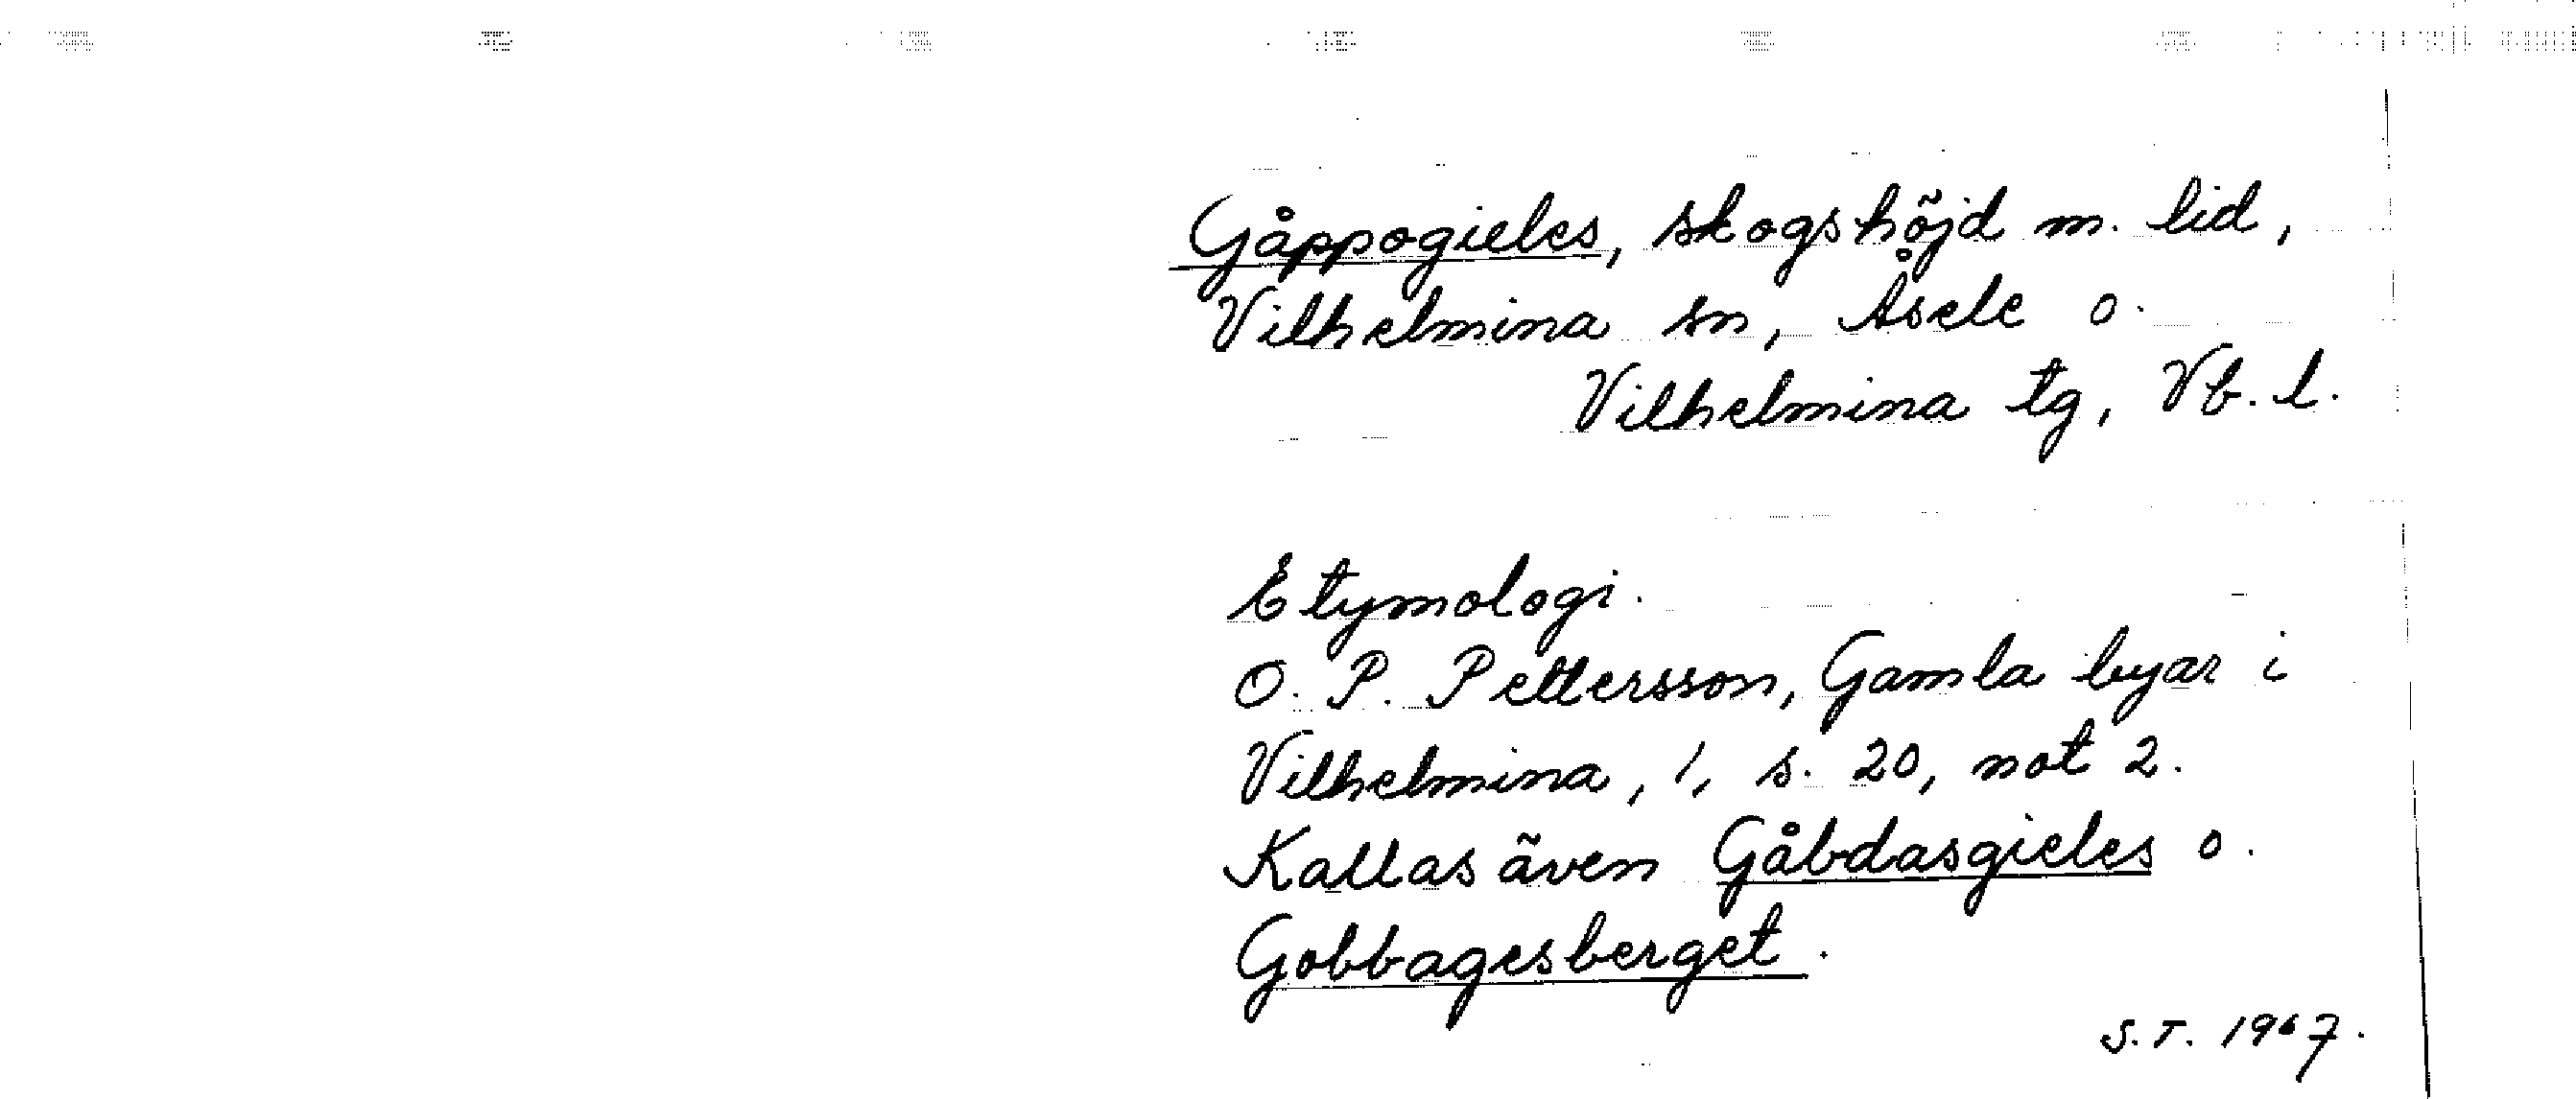 Gåppogieles, skogshöjd m. lid,
Vilhelmina sn, Åsele o.
Vilhelmina tg, Vb. l.
Etymologi.
O. P. Pettersson, Gamla byar i
Vilhelmina, 1, s. 20, not 2.
Kallas även Gåbdasgieles o.
Gobbagesberget.
S.T. 1967.